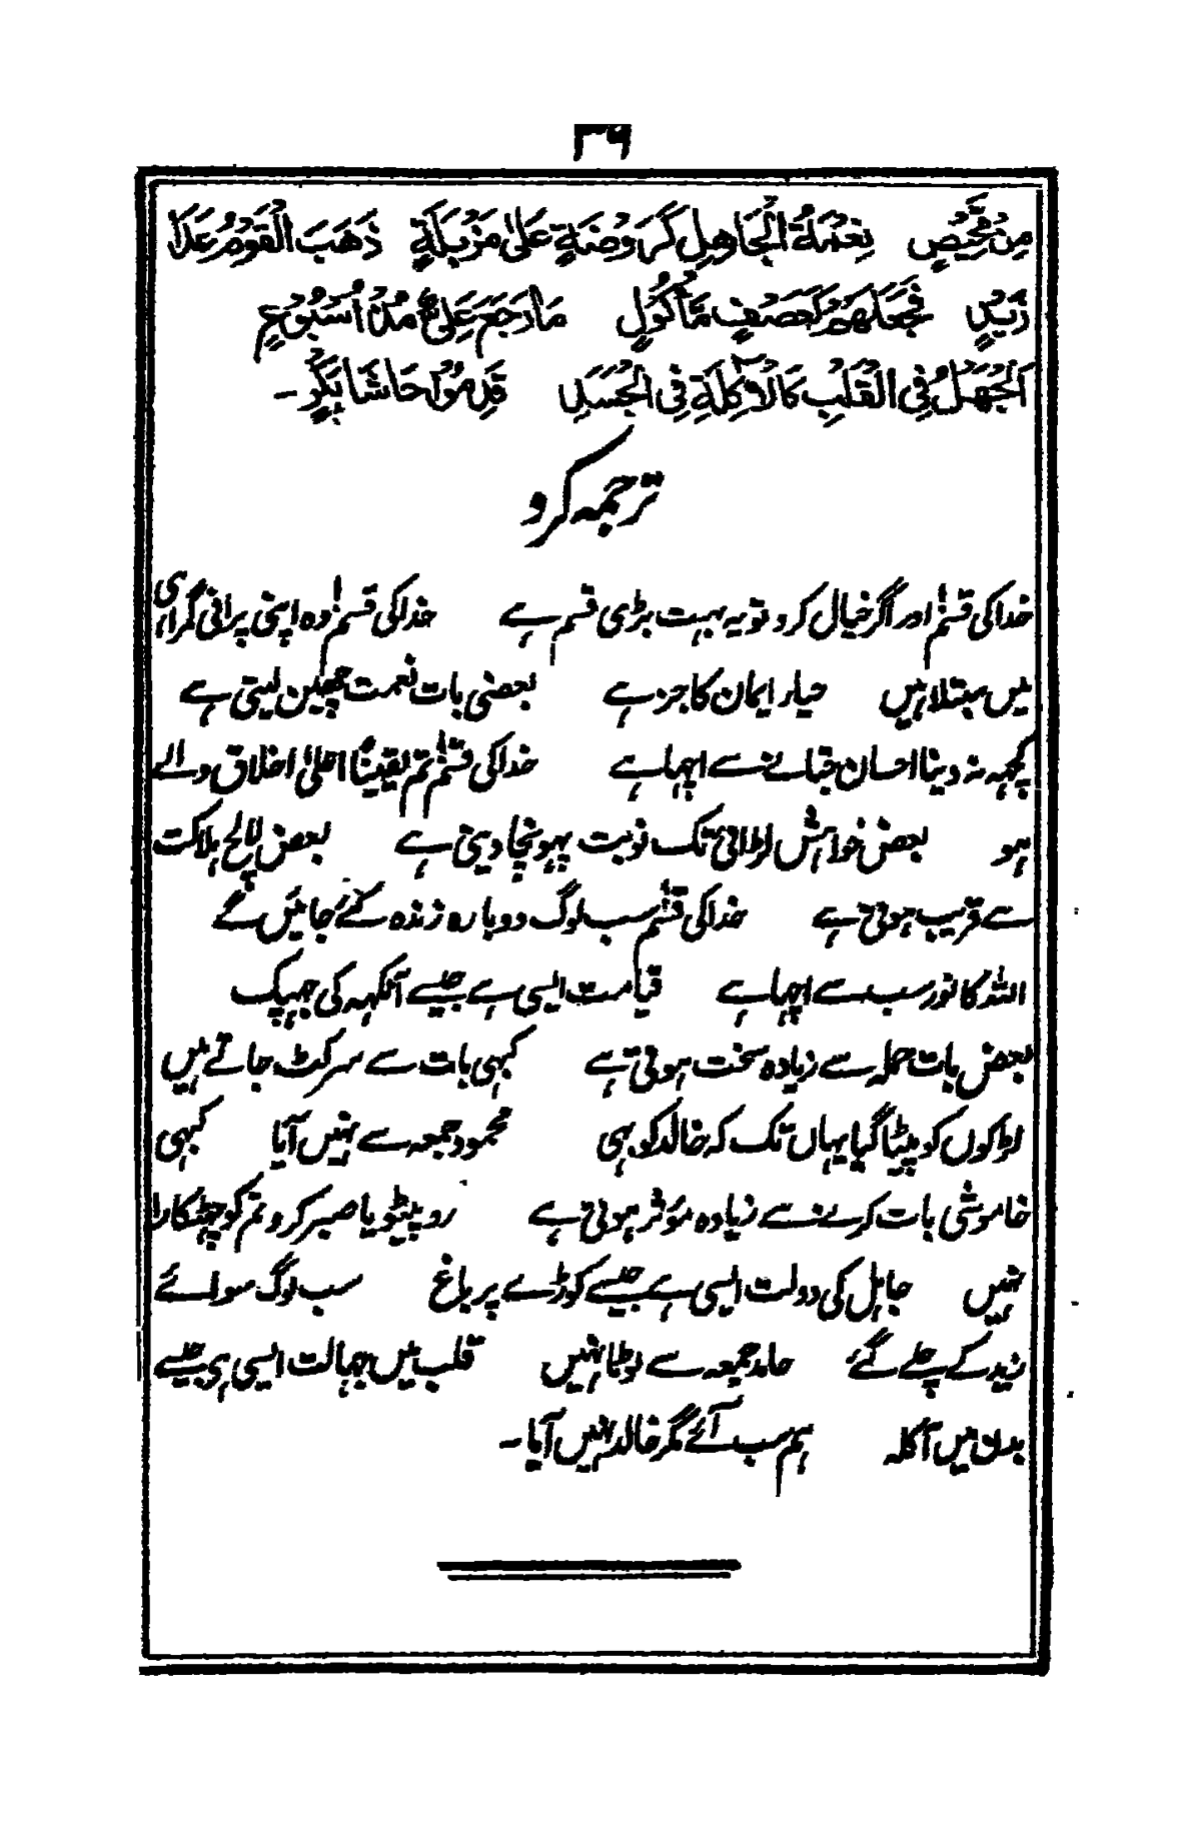 ۳۹
مِنْ مَّحِیْصٍ نِعْمَةُ الْجَاهِلِ كَرَوْضَةٍ عَلیٰ مَزْبَلَةٍ ذَهَبَ الْقَوْمُ عَدَا
زَیْدٍ فَجَعَلَهُمْ كَعَصْفٍ مَّأْكُوْلٍ مَا رَجَعَ عَلِیٌّ مُذْ اُسْبُوْعٍ
اَلْجَهْلُ فِی الْقَلْبِ كَالْاٰكِلَةِ فِی الْجَسَدِ قَدِمُوْا حَاشَا بَكْرٍ ـ
ترجمہ کرو
خدا کی قسم اور اگر خیال کرو تو یہ بہت بڑی قسم ہے خدا کی قسم وہ اپنی پرانی گمراہی
میں مبتلا ہیں حیاء ایمان کا جز ہے بعضی بات نعمت چھین لیتی ہے
کچہہ نہ دینا احسان جتانے سے اچہا ہے خدا کی قسم تم یقیناً اعلیٰ اخلاق والے
ہو بعض خواہش لڑائی تک نوبت پہونچا دیتی ہے بعض لالچ ہلاکت
سے قریب ہوتی ہے خدا کی قسم سب لوگ دوبارہ زندہ کئے جائیں گے
اللہ کا نور سب سے اچہا ہے قیامت ایسی ہے جیسے آنکہہ کی جہپک
بعض بات حملہ سے زیادہ سخت ہوتی ہے کبہی بات سے سر کٹ جاتے ہیں
لڑکوں کو پیٹا گیا یہاں تک کہ خالد کو بہی محمود جمعہ سے نہیں آیا کبہی
خاموشی بات کرنے سے زیادہ مؤثر ہوتی ہے رو پیٹو یا صبر کرو تم کو چہٹکارا
نہیں جاہل کی دولت ایسی ہے جیسے کوڑے پر باغ سب لوگ سوائے
زید کے چلے گئے حامد جمیعہ سے لوٹا نہیں قلب میں جہالت ایسی ہی جیسے
بدن میں آکلہ ہم سب آئے مگر خالد نہیں آیا ـ